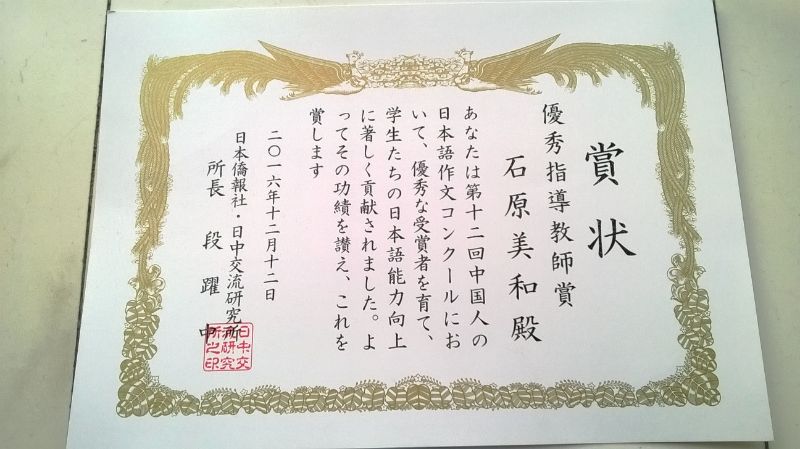 賞状
優秀指導教師賞
石原美和殿
あなたは第十二回中国人の
日本語作文コンクールにお
いて、優秀な受賞者を育て、
学生たちの日本語能力向上
に著しく貢献されました。よ
ってその功績を讃え、これを
賞します
二〇一六年十二月十二日
日本僑報社・日中交流研究所
所長 段躍中
日中交
流研究
所之印